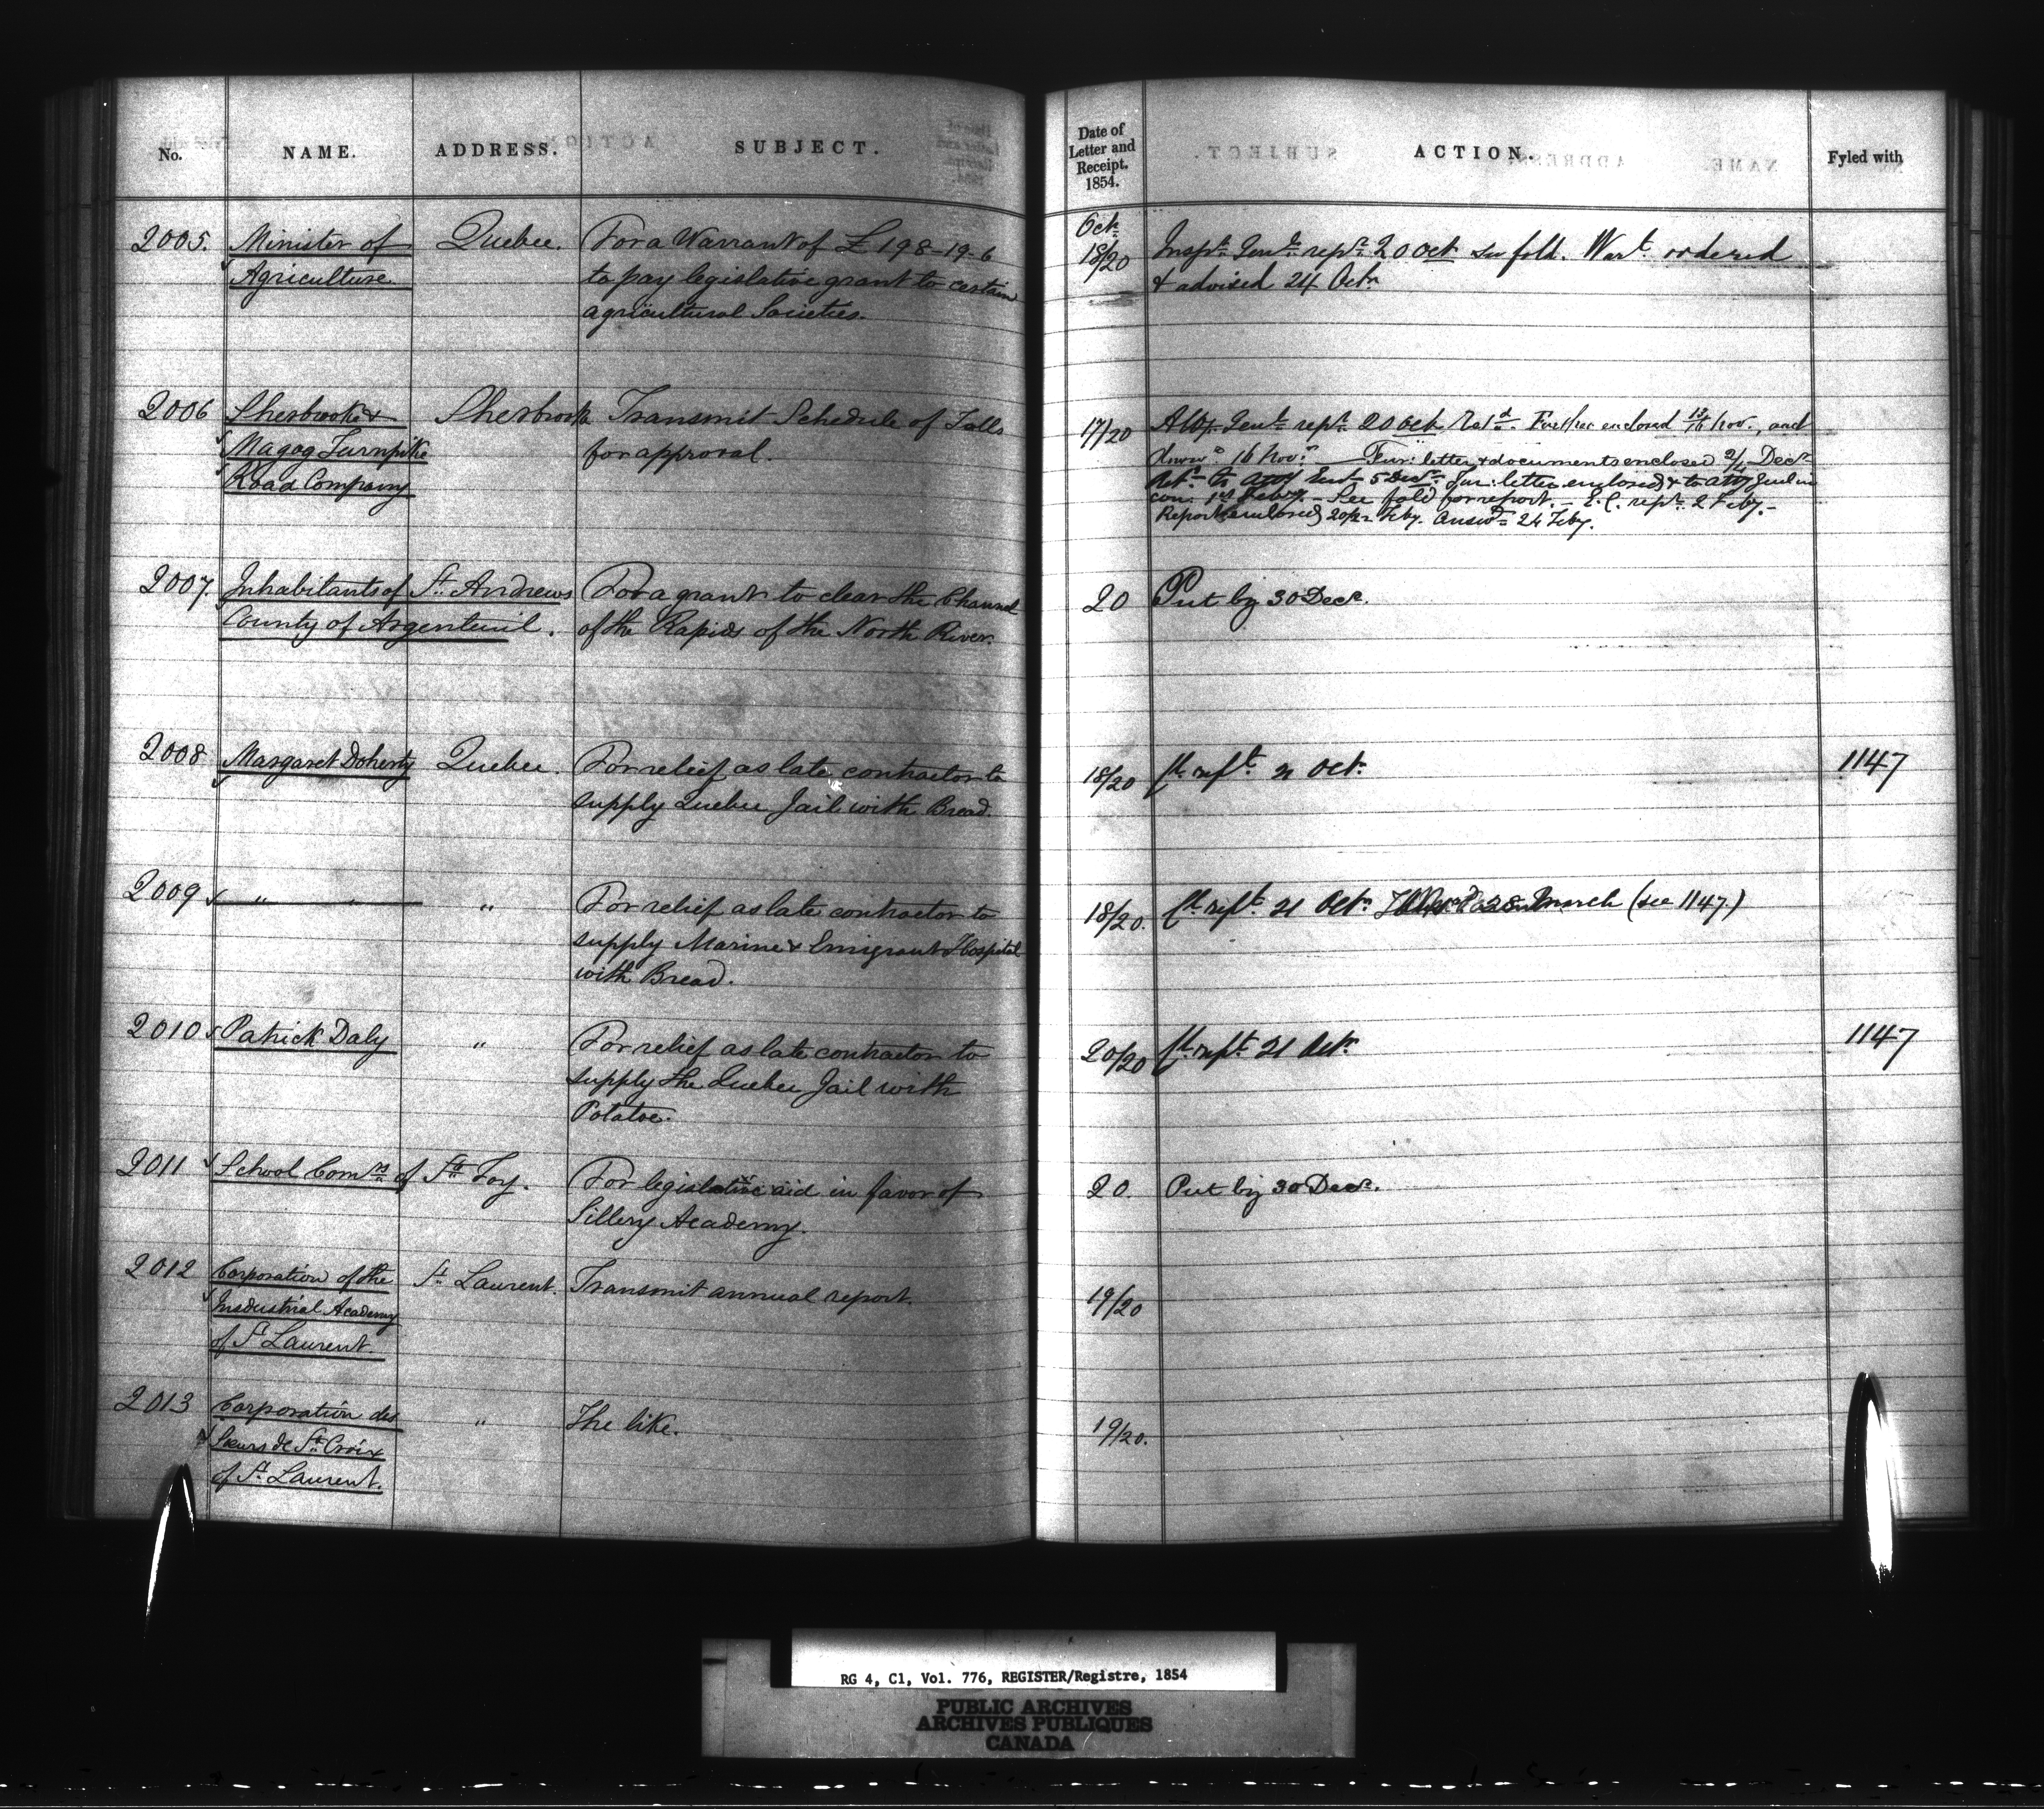 No.
NAME.
ADDRESS.
SUBJECT.
Date of
Letter and
Receipt.
1854.
ACTION.
Fyled with
2005.
Minister of
Agriculture
Quebec.
For a Warrant of £198-19-6
to pay legislative grant to certain
agricultural Societies.
Octr
18/20
Inspr Genl rept 20 Oct see fold. Wart ordered
& advised 24 Octr
2006
Sherbrooke &
Magog Turnpike
Road Company
Sherbrooke
Transmit Schedule of Tolls
for approval.
17/20
Atty Genl rept 20 Oct Further enclosed 13/16 Nov., and
16 Novr Fur: letter & documents enclosed 2/4 Decr
to Atty Genl 5 Decr Fur: letter enclosed & to Atty Genl in
con. 1st Feby. - See fold for report. - E.C. rept 2 Feby. -
Report enclosed 20/22 Feby. Answd 24 Feby.
2007.
Inhabitants of
County of Argenteuil.
St. Andrews
For a grant to clear the Channel
of the Rapids of the North River.
20
Put by 30 Decr.
2008
Margaret Doherty
Quebec.
For relief as late contractor to
supply Quebec Jail with Bread.
18/20
21 Octr
1147
2009
" "
"
For relief as late contractor to
supply Marine & Emigrant Hospital
with Bread.
18/20.
21 Octr 28 March (see 1147.)
2010
Patrick Daly
"
For relief as late contractor to
supply the Quebec Jail with
Potatoe.
20/20
21 Octr
1147
2011
School Comrs of
Ste Foy.
For legislative aid in favor of
Sillery Academy.
20.
Put by 30 Decr.
2012
Corporation of the
Insdustrial Academy
of St Laurent.
St. Laurent.
Transmit annual report.
19/20
2013
Corporation des
Sœurs de Ste Croix
of St Laurent.
"
The like.
19/20.
RG 4, C1, Vol. 776, REGISTER/Registre, 1854
PUBLIC ARCHIVES
ARCHIVES PUBLIQUES
CANADA